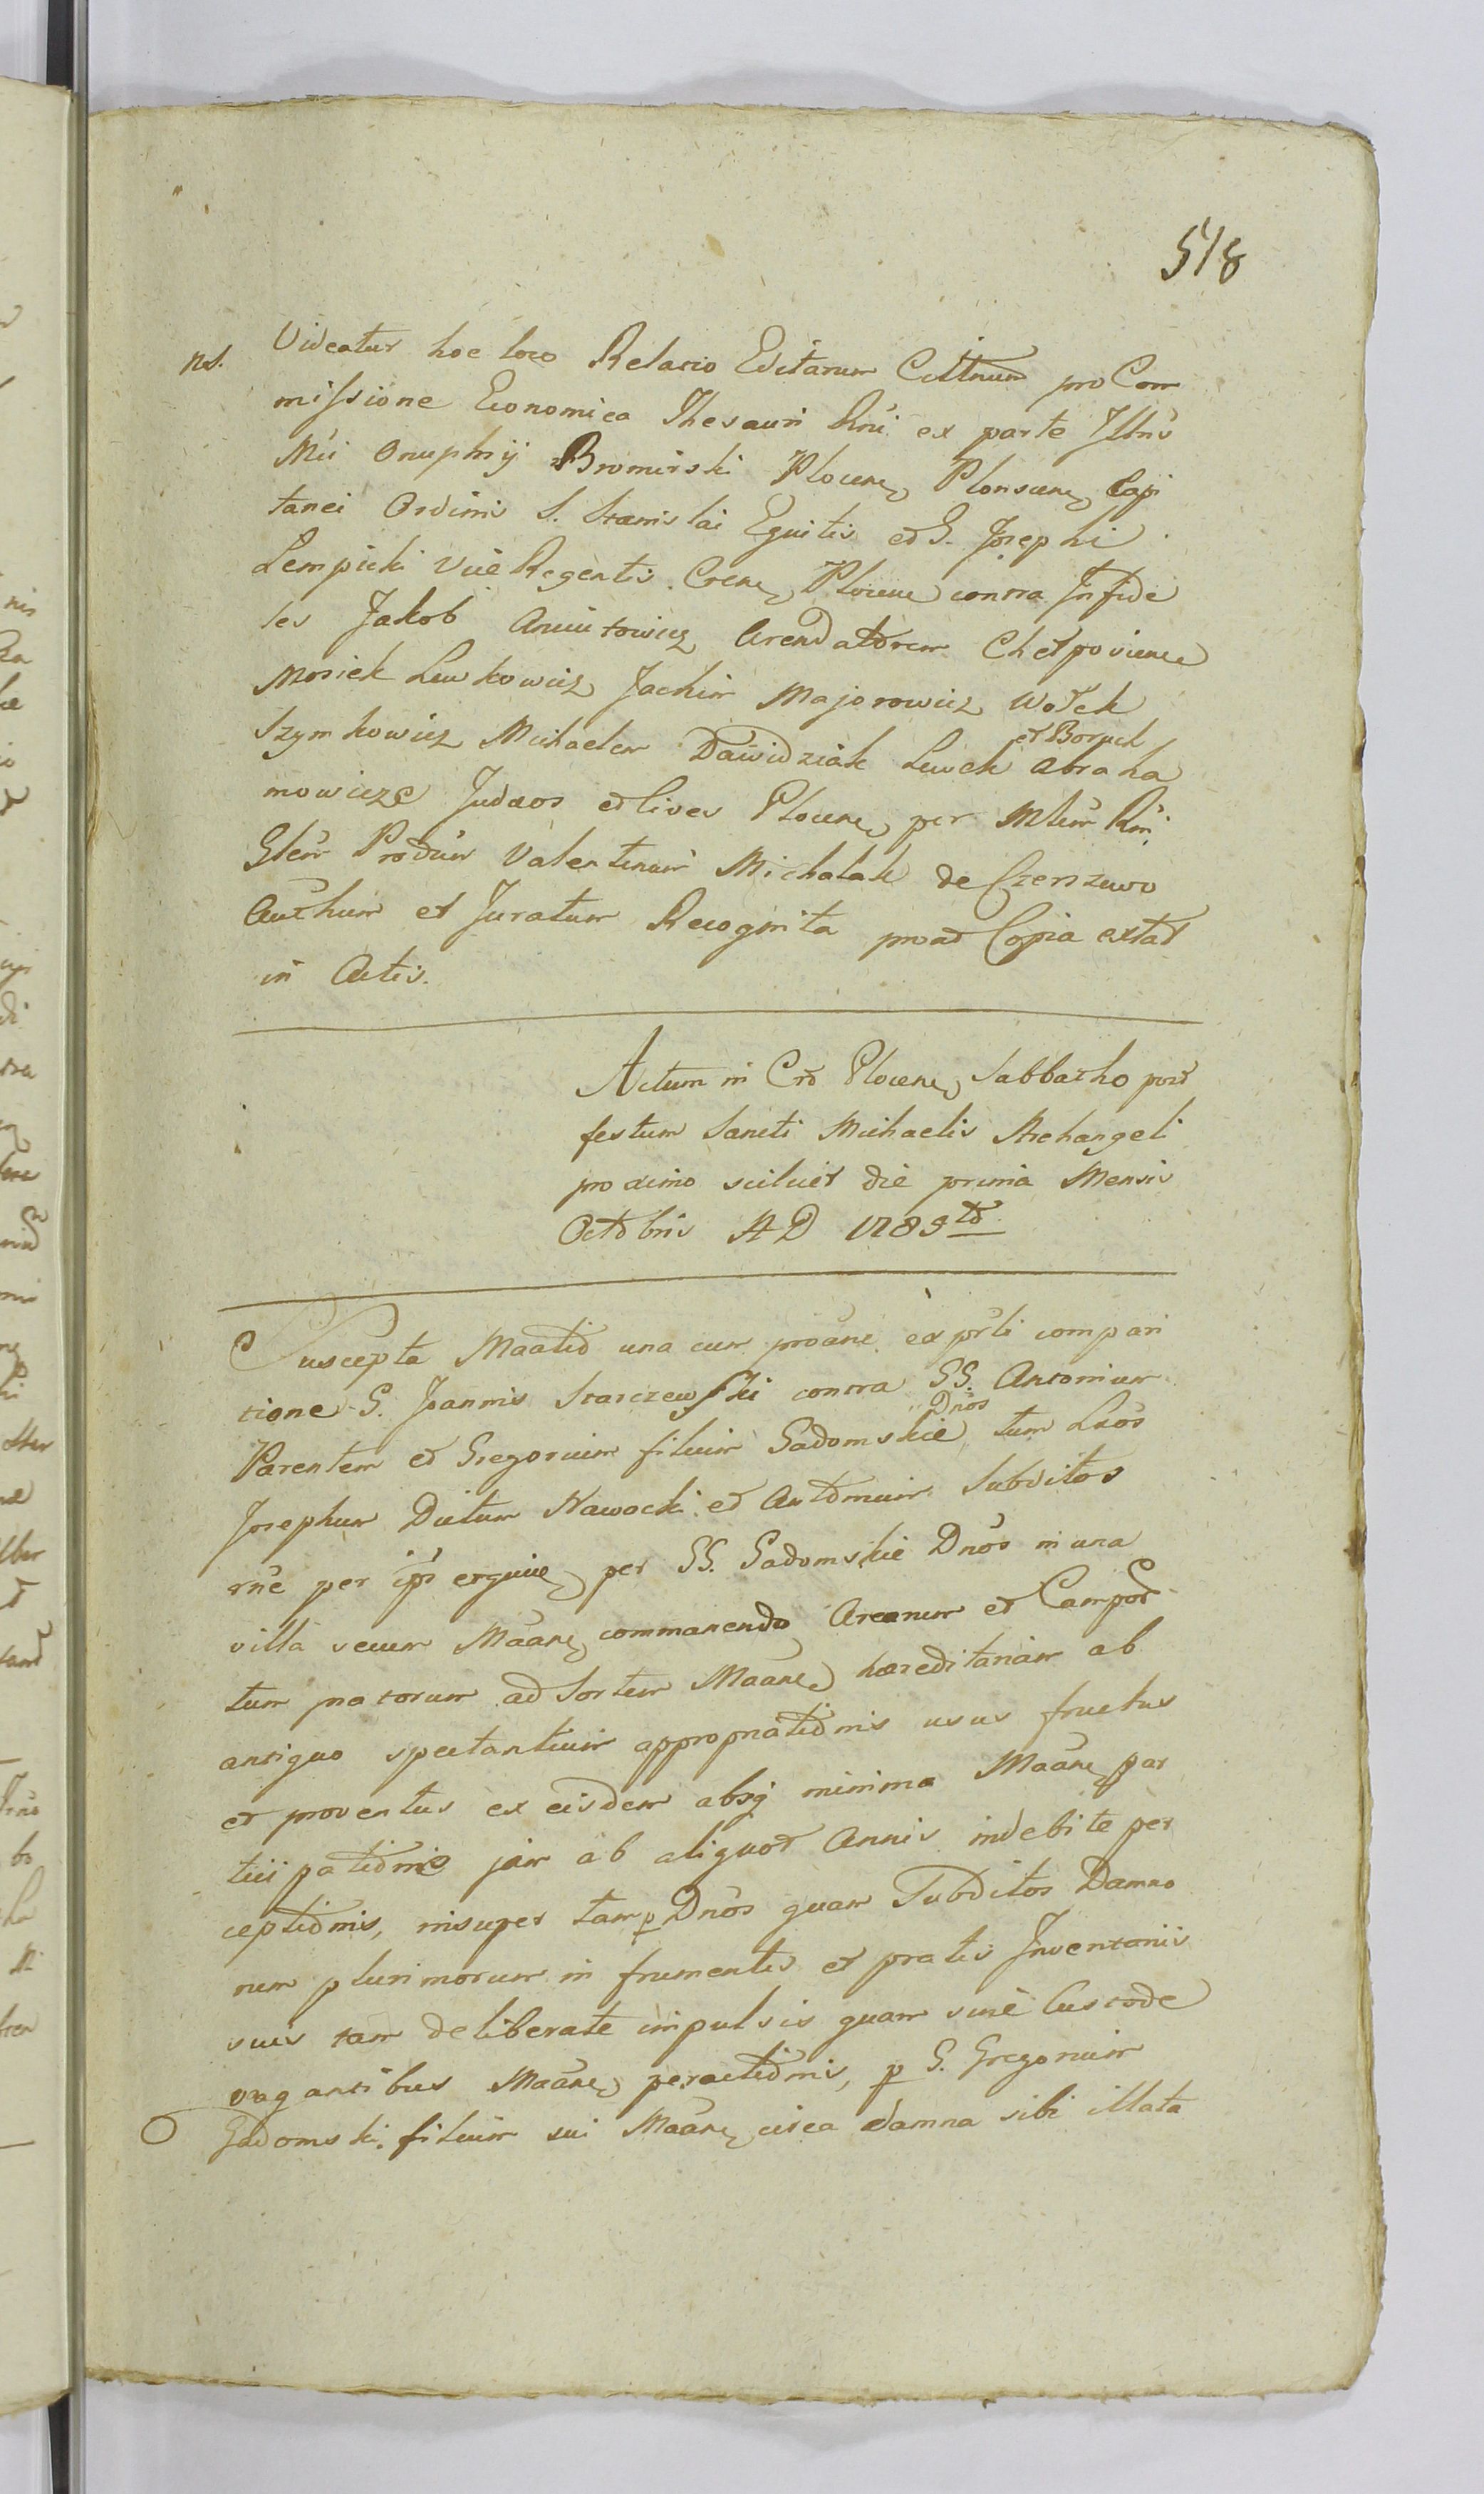 518
Ns. Videatur hoc loco Relatio Editarum Cittnum pro Com
missione Economica Thesauri Rni ex parte Illris
Mci Onuphrij Bromirski Plocen, Plonscen, Capi
tanei Ordinis S. Stanislai Equitis et G. Josephi
Lempicki Vice Regentis Cren, Plocen contra Infide
les Jakob Arendatorem
Mosiek Lewkowicz Jachim Majorowicz Wolek
et Boruch
Szymkowicz Michaelem Dawidziak Lewek Abraha
mowicze Judaos et Cives Plocen, per Mlem Rni
Glem Produm Valentinum Michalak de Czerszewo
Authum et Juratum Recognita proat Copia extat
in Actis.
Actum in Cro Plocen, Sabbatho post
festum Sancti Michaelis Archangeli
proximo scilicet die prima Mensis
Octobris AD 1785to
Suscepta Maatio una cum proane ex prti compari
tione G. Joannis Starczewski contra GG. Antonium
Dnos
Parentem et Gregorium filium Gadomskie tum Laos
Josephum Dictum Nawocki et Antonium Subditos
rne per per GG. Gadomskie Dnos in una
villa secum Maane, commanendo Arearum et Campor
tum pratorum ad Sortem Maane, hæreditariam ab
antiquo spectantium appropriationis usus fructus
et proventus ex eisdem absq minima Maane, par
ticipationis jam ab aliquot Annis indebite per
ceptionis, insuper tam p Dnos quam Subditos Damno
rum plurimorum in frumentis et pratis Inventariis
suis tam deliberate impulsis quam sine Custode
vagantibus Maane, peractionis, p G. Gregorium
Gadomski filium sui Maane, circa damna sibi illata